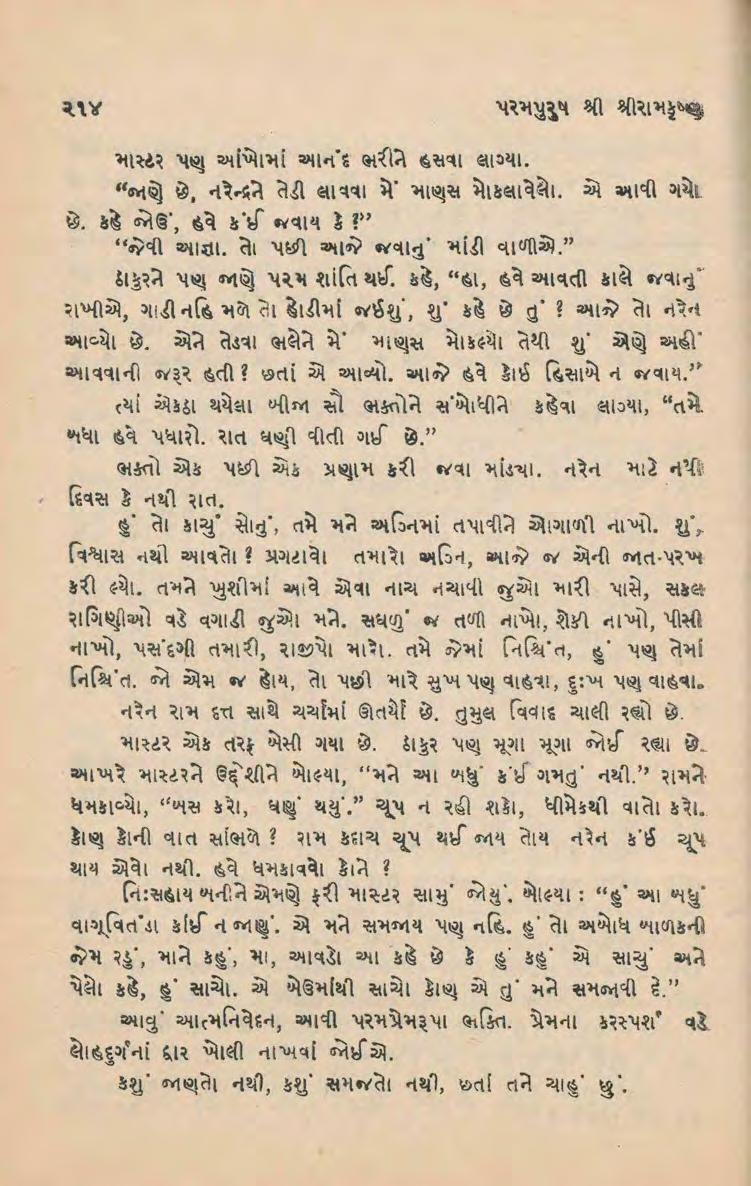 ૨૧૪ પરમપુરુષ શ્રી શ્રીરામકૃષ્ણ
માસ્ટર પણ આંખોમાં આનંદ ભરીને હસવા લાગ્યા.
“જાણે છે, નરેન્દ્રને તેડી લાવવા મેં માણસ મોકલાવેલો. એ આવી ગયો
છે. કહે જોઉં, હવે કંઈ જવાય કે ?”
“જેવી આજ્ઞા. તો પછી આજે જવાનું માંડી વાળીએ.”
ઠાકુરને પણ જાણે પરમ શાંતિ થઈ. કહે, “હા, હવે આવતી કાલે જવાનું
રાખીએ, ગાડી નહિ મળે તો હોડીમાં જઈશું, શું કહે છે તું ? આજે તો નરેન
આવ્યો છે. એને તેડવા ભલેને મેં માણસ મોકલ્યો તેથી શું એણે અહીં
આવવાની જરૂર હતી ? છતાં એ આવ્યો. આજે હવે કોઈ હિસાબે ન જવાય.”
ત્યાં એકઠા થયેલા બીજા સૌ ભક્તોને સંબોધીને કહેવા લાગ્યા, “તમે
બધા હવે પધારો. રાત ઘણી વીતી ગઈ છે.”
ભક્તો એક પછી એક પ્રણામ કરી જવા માંડ્યા. નરેન માટે નથી
દિવસ કે નથી રાત.
હું તો કાચું સોનું, તમે મને અગ્નિમાં તપાવીને ઓગાળી નાખો. શું,
વિશ્વાસ નથી આવતો ? પ્રગટાવો તમારો અગ્નિ, આજે જ એની જાત-પરખ
કરી લ્યો. તમને ખુશીમાં આવે એવા નાચ નચાવી જુઓ મારી પાસે, સકલ
રાગિણીઓ વડે વગાડી જુઓ મને. સઘળું જ તળી નાખો, શેકી નાખો, પીસી
નાખો, પસંદગી તમારી, રાજીપો મારો. તમે જેમાં નિશ્ચિંત, હું પણ તેમાં
નિશ્ચિંત. જો એમ જ હોય, તો પછી મારે સુખ પણ વાહવા, દુઃખ પણ વાહવા.
નરેન રામ દત્ત સાથે ચર્ચામાં ઊતર્યો છે. તુમુલ વિવાદ ચાલી રહ્યો છે.
માસ્ટર એક તરફ બેસી ગયા છે. ઠાકુર પણ મૂગા મૂગા જોઈ રહ્યા છે.
આખરે માસ્ટરને ઉદ્દેશીને બોલ્યા, “મને આ બધું કંઈ ગમતું નથી.” રામને
ધમકાવ્યો, “બસ કરો, ઘણું થયું.” ચૂપ ન રહી શકો, ધીમેકથી વાતો કરો.
કોણ કોની વાત સાંભળે ? રામ કદાચ ચૂપ થઈ જાય તોય નરેન કંઈ ચૂપ
થાય એવો નથી. હવે ધમકાવવો કોને ?
નિઃસહાય બનીને એમણે ફરી માસ્ટર સામું જોયું. બોલ્યા : “હું આ બધું
વાગ્‌વિતંડા કાંઈ ન જાણું. એ મને સમજાય પણ નહિ. હું તો અબોધ બાળકની
જેમ રડું, માને કહું, મા, આવડો આ કહે છે કે હું કહું એ સાચું અને
પેલો કહે, હું સાચો. એ બેઉમાંથી સાચો કોણ એ તું મને સમજાવી દે.”
આવું આત્મનિવેદન, આવી પરમપ્રેમરૂપા ભક્તિ. પ્રેમના કરસ્પર્શ વડે
લોહદુર્ગનાં દ્વાર ખોલી નાખવાં જોઈએ.
કશું જાણતો નથી, કશું સમજતો નથી, છતાં તને ચાહું છું.